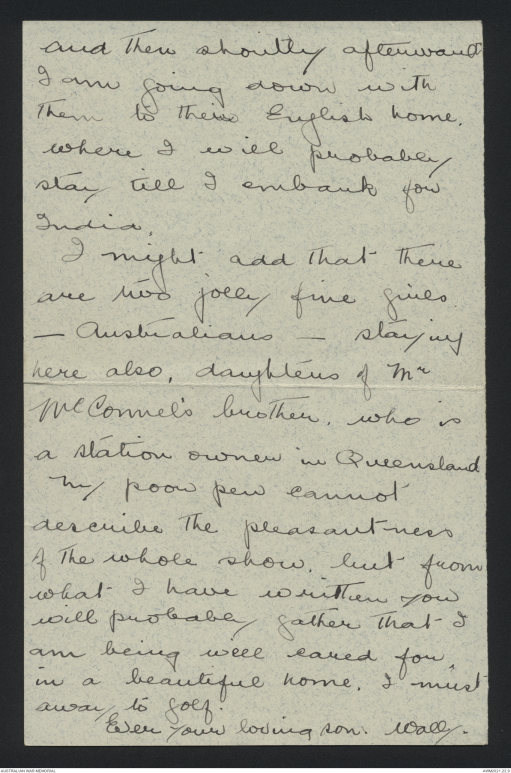 and then shortly afterwards
I am going down with
them to their English home.
where I will probably
stay till I embark for
India.
I might add that there
are two jolly fine girls
— Australians — staying
here also, daughters of Mr
McConnel's brother, who is
a station owner in Queensland
My poor pen cannot
describe the pleasantness
of the whole show, but from
what I have written you
will probably gather that I
am being well cared for,
in a beautiful home. I must
away to golf.
Ever your loving son. Wally.
AUSTRALIAN WAR MEMORIAL